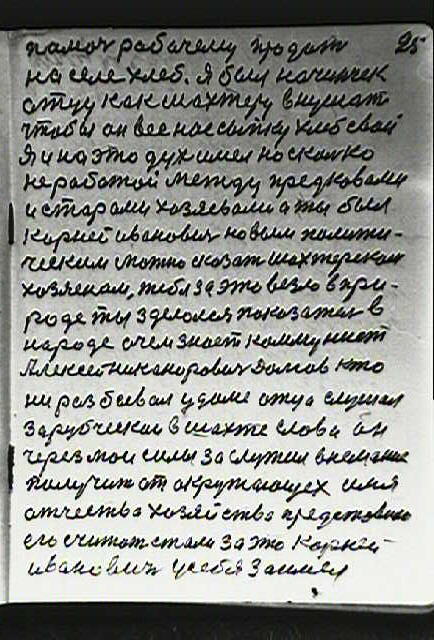 помоч рабачему продат 25
на селе хлеб. Я был начинчек
отцу как шахтеру внушат
чтобы он вее насыпку хлеб свой
Я и на это дух имел но сколко
не работой между предковами
и старами хозяевами а ты был
Корней иванович новым полити-
ческим можно сказат шахтерском
хозяеном, тебя за это везло в при-
роде ты зделолся показател в
народе о чем знает коммунист
Алексей никанорович Домов кто
ни разбевал у доме отца слушал
зарубческаи в шахте слова он
через мои силы заслужил внемание
получит от окружающех имя
отчества хозяйства представено
его считат стали за это Корней
иванович у себя заимел